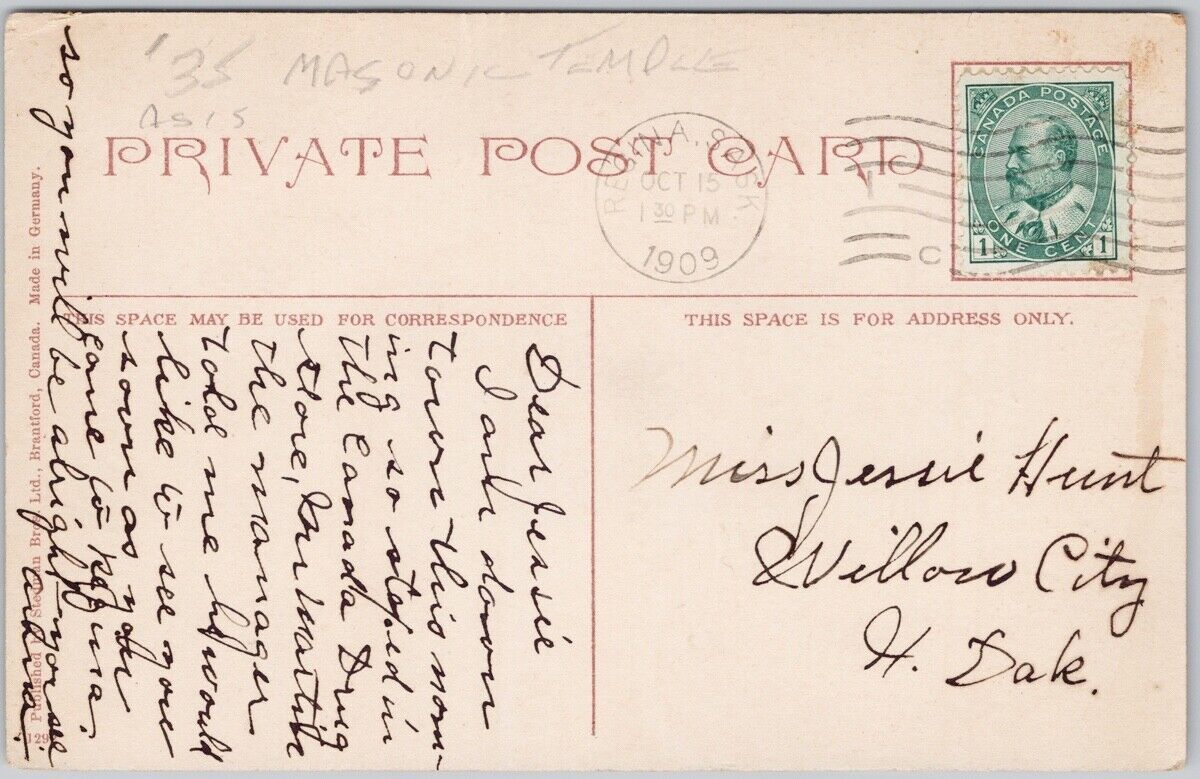 '35 MASONIC TEMPLE
AS IS
PRIVATE POST CARD
REGINA, SASK
OCT 15
1 30 PM
1909
CANADA POSTAGE
1 ONE CENT 1
THIS SPACE MAY BE USED FOR CORRESPONDENCE
THIS SPACE IS FOR ADDRESS ONLY.
Dear Jessie
I am down
town this morn-
ing so stoped in
the Canada Drug
store, Mr Martin
the manager
told me he would
like to see you
soon as you
came to Regina.
so you will be alright you see
Miss Jessie Hunt
Willow City
N. Dak.
Published by Stedman Bros. Ltd., Brantford, Canada. Made in Germany.